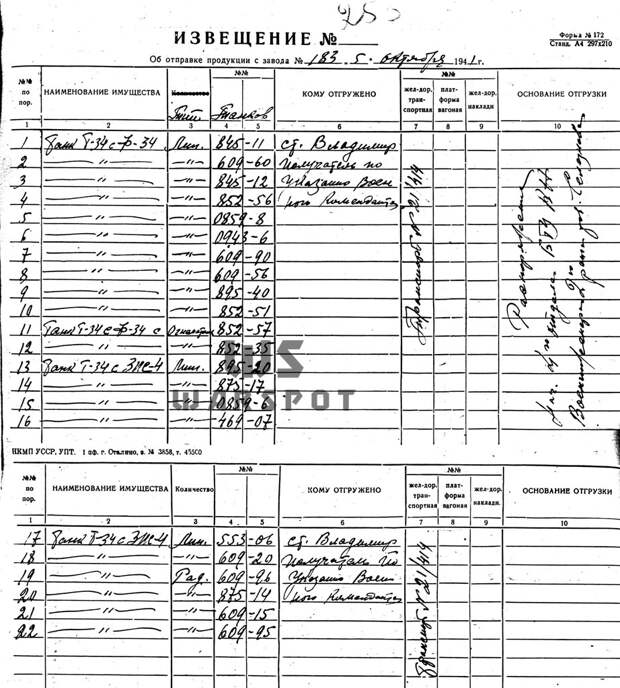 ИЗВЕЩЕНИЕ №
Форма № 172
Станд. А4 297×210
Об отправке продукции с завода № 183 5 · октября 1941 г.
№№ по пор. НАИМЕНОВАНИЕ ИМУЩЕСТВА Количество Тип №№ Танков КОМУ ОТГРУЖЕНО №№ жел-дор. тран- спортная плат- форма вагоная жел-дор. накладн. ОСНОВАНИЕ ОТГРУЗКИ
1 2 3 4 5 6 7 8 9 10
1 Танк Т-34 с Ф-34 Лин. 845-11 ст. Владимир
2 —〃— —〃— 609-60 получатель по
3 —〃— —〃— 845-12 указанию Воен
4 —〃— —〃— 852-56 ного Коменданта
5 —〃— —〃— 0859-8
6 —〃— —〃— 0943-6
7 —〃— —〃— 609-90
8 —〃— —〃— 609-56
9 —〃— —〃— 895-40
10 —〃— —〃— 852-51
11 Танк Т-34 с Ф-34 с Огнеметн 852-57
12 —〃— —〃— 852-35
13 Танк Т-34 с ЗИС-4 Лин. 895-20
14 —〃— —〃— 875-17
15 —〃— —〃— 0859-6
16 —〃— —〃— 464-07
Транспорт № 21/414
Распоряжение
WARSPOT
НКМП УССР, УПТ. 1 оф. г. Сталино, в. № 3858, т. 45500
№№ по пор. НАИМЕНОВАНИЕ ИМУЩЕСТВА Количество №№ КОМУ ОТГРУЖЕНО №№ жел-дор. тран- спортная плат- форма вагоная жел-дор. накладн. ОСНОВАНИЕ ОТГРУЗКИ
1 2 3 4 5 6 7 8 9 10
17 Танк Т-34 с ЗИС-4 Лин. 553-06 ст. Владимир
18 —〃— —〃— 609-20 получатель по
19 —〃— Рад. 609-96 указанию Воен
20 —〃— 〃 875-14 ного Коменданта
21 —〃— —〃— 609-15
22 —〃— —〃— 609-95
Транспорт № 21/414